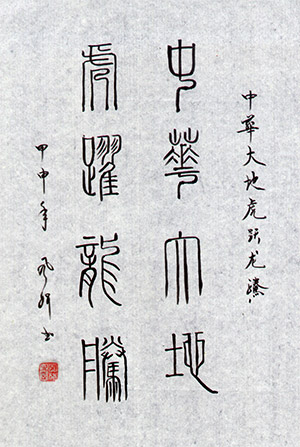 中華大地虎跃龙騰
中華大地
虎躍龍騰
甲申年 书